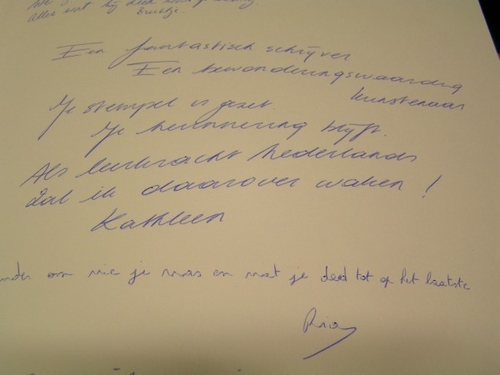 alles wat bij
Een fantastisch schrijver
Een bewonderingswaardig
kunstenaar
Je stempel is gezet
Je herinnering blijft.
Als leerkracht Nederlands
zal ik daarover waken!
Kathleen
om wie je was en wat je deed tot op het laatste
Ria